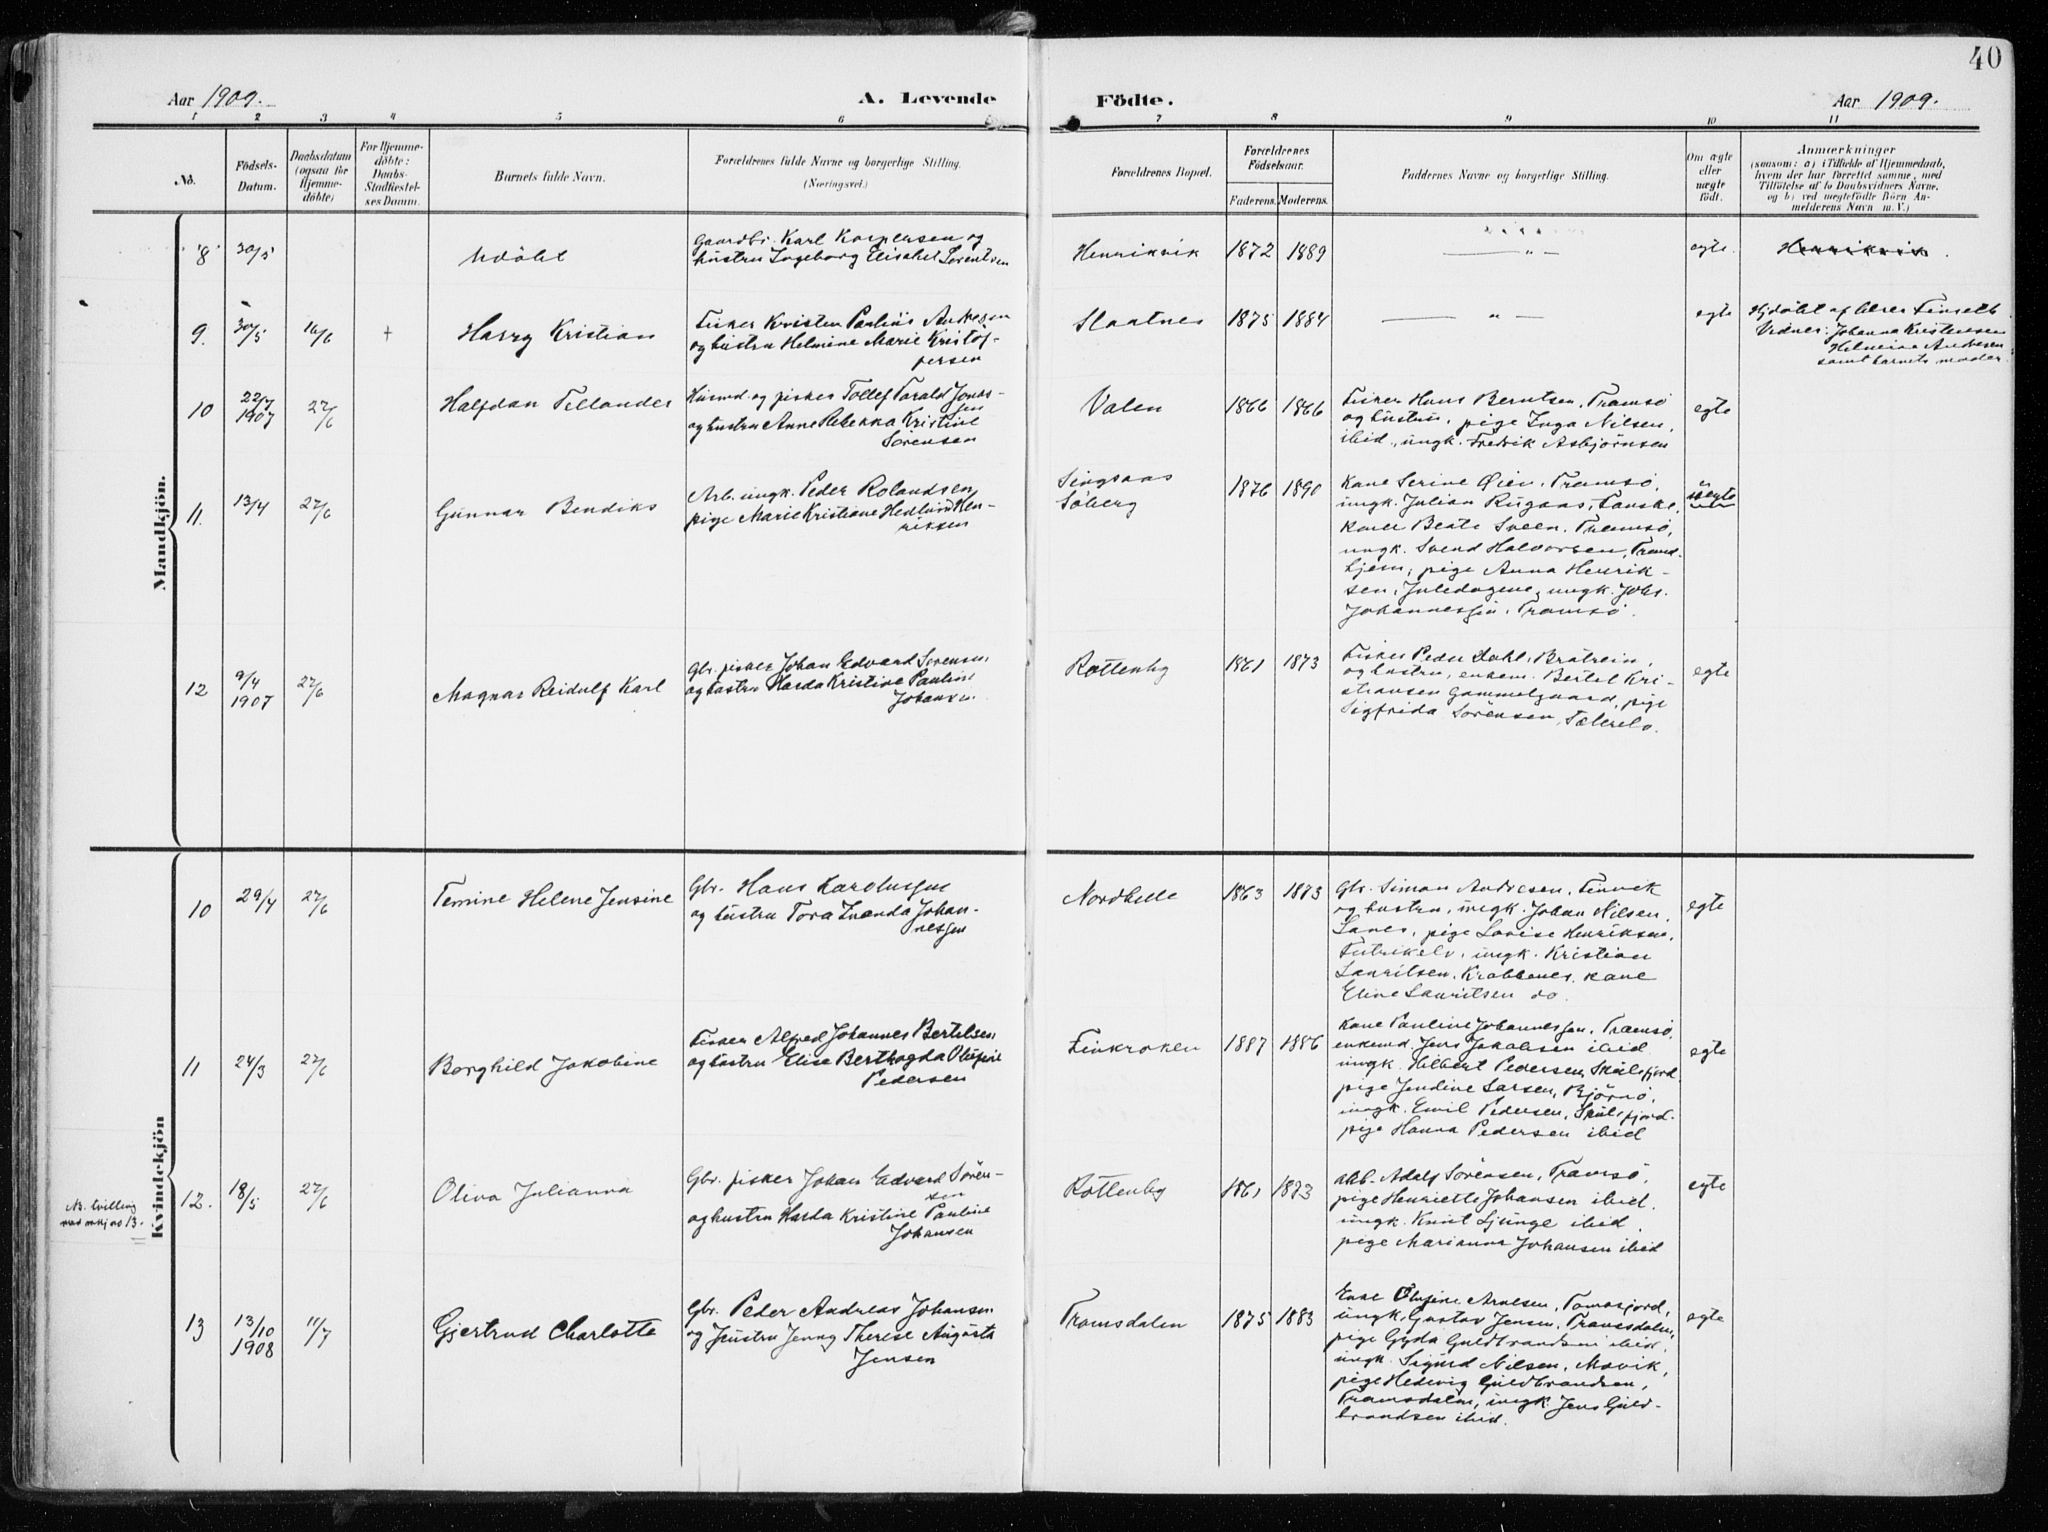 40
Aar 1909.
A. Levende
Födte.
Aar 1909.
1 2 3 4 5 6 7 8 9 10 11
No.
Födsels-
Datum.
Daabsdatum
(ogsaa for
Hjemme-
döbte)
For Hjemme-
döbte:
Daabs-
Stadfæstel-
ses Datum.
Barnets fulde Navn.
Forældrenes fulde Navne og borgerlige Stilling.
(Næringsvei.)
Forældrenes Bopæl.
Forældrenes
Födselsaar.
Faderens. Moderens.
Faddernes Navne og borgerlige Stilling.
Om ægte
eller
uægte
födt.
Anmærkninger
(saasom: a) i Tilfælde af Hjemmedaab,
hvem der har forrettet samme, med
Tilföielse af to Daabsvidners Navne.
og b) ved uægtefödte Börn An-
melderens Navn m. V.)
Mandkjön.
8 30/5
Udöbt
Gaardbr. Karl Kaspersen og
hustru Ingeborg Elisabet Sorentsen
Henrikvik
1872 1889
— " —
egte.
Henrikvik
9. 30/5 16/6 +
Harry Kristian
Fisker Kristen Paulus Andresen
og hustru Helmine Marie Kristof-
persen
Slaatnes
1875 1884
— " —
egte
Hjdöbt af
Vidner: Johanna Kristensen
Helmina Andresen
samt barnets moder.
10 22/7
1907
27/6
Halfdan Tellander
Husmd. og fisker Tollef Tarald Jonas-
sen
og hustru Anne Rebekka Kristine
Sörensen
Valen
1866 1866
Fisker Hans Berntsen, Tromsö
og hustru, pige Inga Nilsen,
ibid., ungk. Fredrik Asbjörnsen
egte
11. 13/4 27/6
Gunnar Bendiks
Arb. ungk. Peder Rolandsen,
pige Marie Kristiane Hedlund Hen-
riksen
Singsaas
Söberg
1876 1890
Kone Serine Öien, Tromsö,
ungk. Julian Rugaas, Fauske,
kone Beate Sveen, Tromsö,
ungk. Svend Halvorsen, Trond-
hjem, pige Anna Henrik-
sen, ungk. Johs.
Johannessen, Tromsö.
uegte
12 9/4
1907
27/6
Magnar Reidulf Karl
Gbr. fisker Johan Edvard Sörensen,
og hustru Harda Kristine Pauline
Johansen.
Rottenby
1861 1873
Fisker Peder Dahl, Bratrein,
og hustru, enkem. Bertel Kri-
stiansen Gammelgaard, pige
Sigfrida Sörensen,
egte
Kvindekjön
10 29/4 27/6
Temine Helene Jensine
Gbr. Hans Karolussen
og hustru Tora Johan-
nessen
Nordbelle
1863 1873
Gbr. Simon Andresen, Finvik
og hustru, ungk. Johan Nilsen,
Sanes, pige Lovise Henriksen,
Futrikelv, ungk. Kristian
Lauritsen, Krabbenes, kone
Eline Lauritsen do.
egte
11 24/3 27/6
Borghild Jakobine
Fisker Alfred Johannes Bertelsen
og hustru Elise Berthogda Olufine
Pedersen
Finkroken
1887 1886
Kone Pauline Johannessen, Tromsö,
enkemd. Jens Jakobsen ibid
ungk. Hilbert Pedersen, Skulsfjord,
pige Jendine Larsen, Björnö,
ungk. Emil Pedersen, Skulsfjord.
pige Hanna Pedersen ibid
egte
NB. tvilling
med mkj no 13.
12. 18/5 27/6
Oliva Julianna
Gbr. fisker Johan Edvard Sören-
sen
og hustru Harda Kristine Pauline
Johansen
Rottenby
1861 1873
Adolf Sörensen, Tromsö,
pige Henriette Johansen ibid.
ungk. Knut Ljunge ibid.
pige Marianna Johansen ibid
egte
13 13/10
1908
11/7
Gjertrud Charlotte
Gbr. Peder Andreas Johansen
og hustru Jenny Therese Augusta
Jensen
Tromsdalen
1875 1883
Enke Olufine Arnesen, Tomasjord,
ungk. Gustav Jensen, Tromsdalen,
pige Gyda Guldbrandsen ibid.
ungk. Sigurd Nilsen, Movik,
pige Hedevig Guldbrandsen,
Tromsdalen, ungk. Jens Guld-
brandsen ibid.
egte